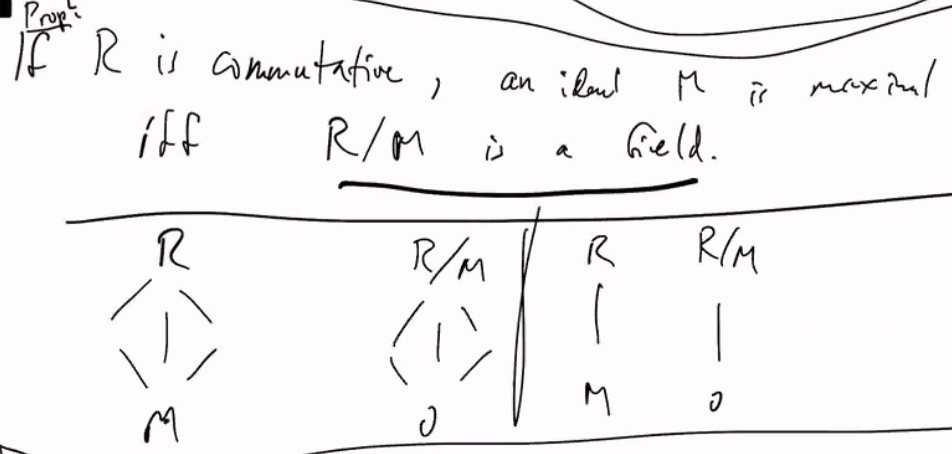 Prop:
If R is commutative, an ideal M is maximal
iff R/M is a field.
R R/M R R/M
M 0 M 0